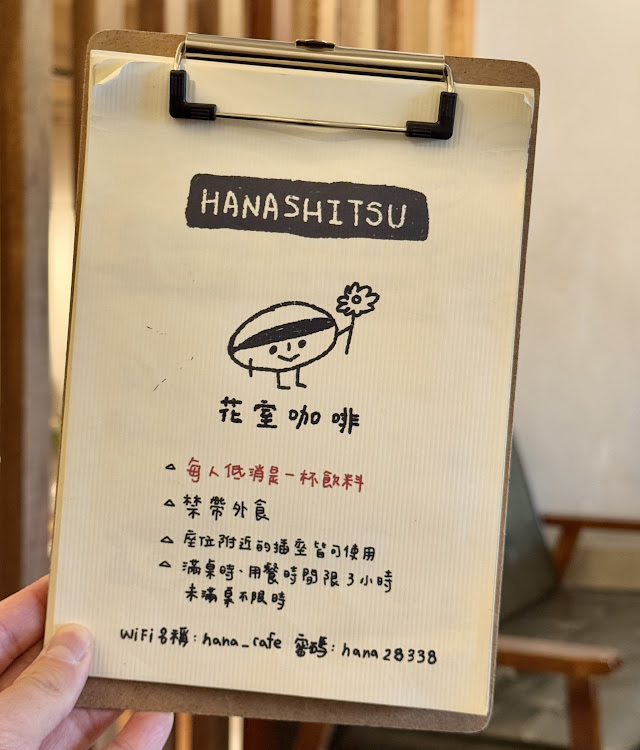 HANASHITSU
花室咖啡
△ 每人低消是一杯飲料
△ 禁帶外食
△ 座位附近的插座皆可使用
△ 滿桌時、用餐時間限3小時
未滿桌不限時
WiFi名稱:hana_cafe 密碼:hana28338